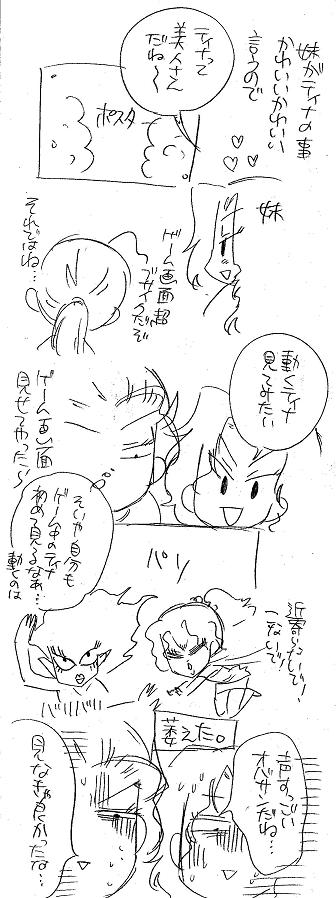 妹がティナの事
かわいいかわいい
言うので
ティナって
美人さん
だね〜
ポスタ
妹
ゲーム画面超
ブサイクだぞ
それではね…
動くティナ
見てみたい
ゲーム画面
見せてやったら
パソ
そいや自分も
ゲーム中のティナ
初めて見るなぁ…
動くのは
近寄らないで!
来ないで!
バババババ
萎えた。
声すっごい
オバサン
だね…
見なきゃ良かったな…